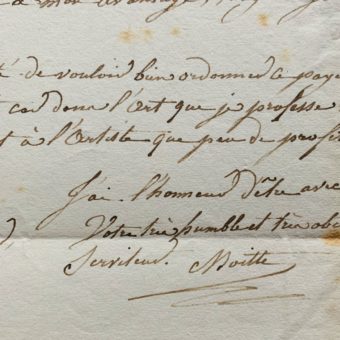 à mon avantage
té de vouloir bien ordonner ce paye
t car dans l'art que je professe
t à l'Artiste que peu de profi
J'ai l'honneur d'être avec
Votre très humble et très obe
Serviteur. Boitte